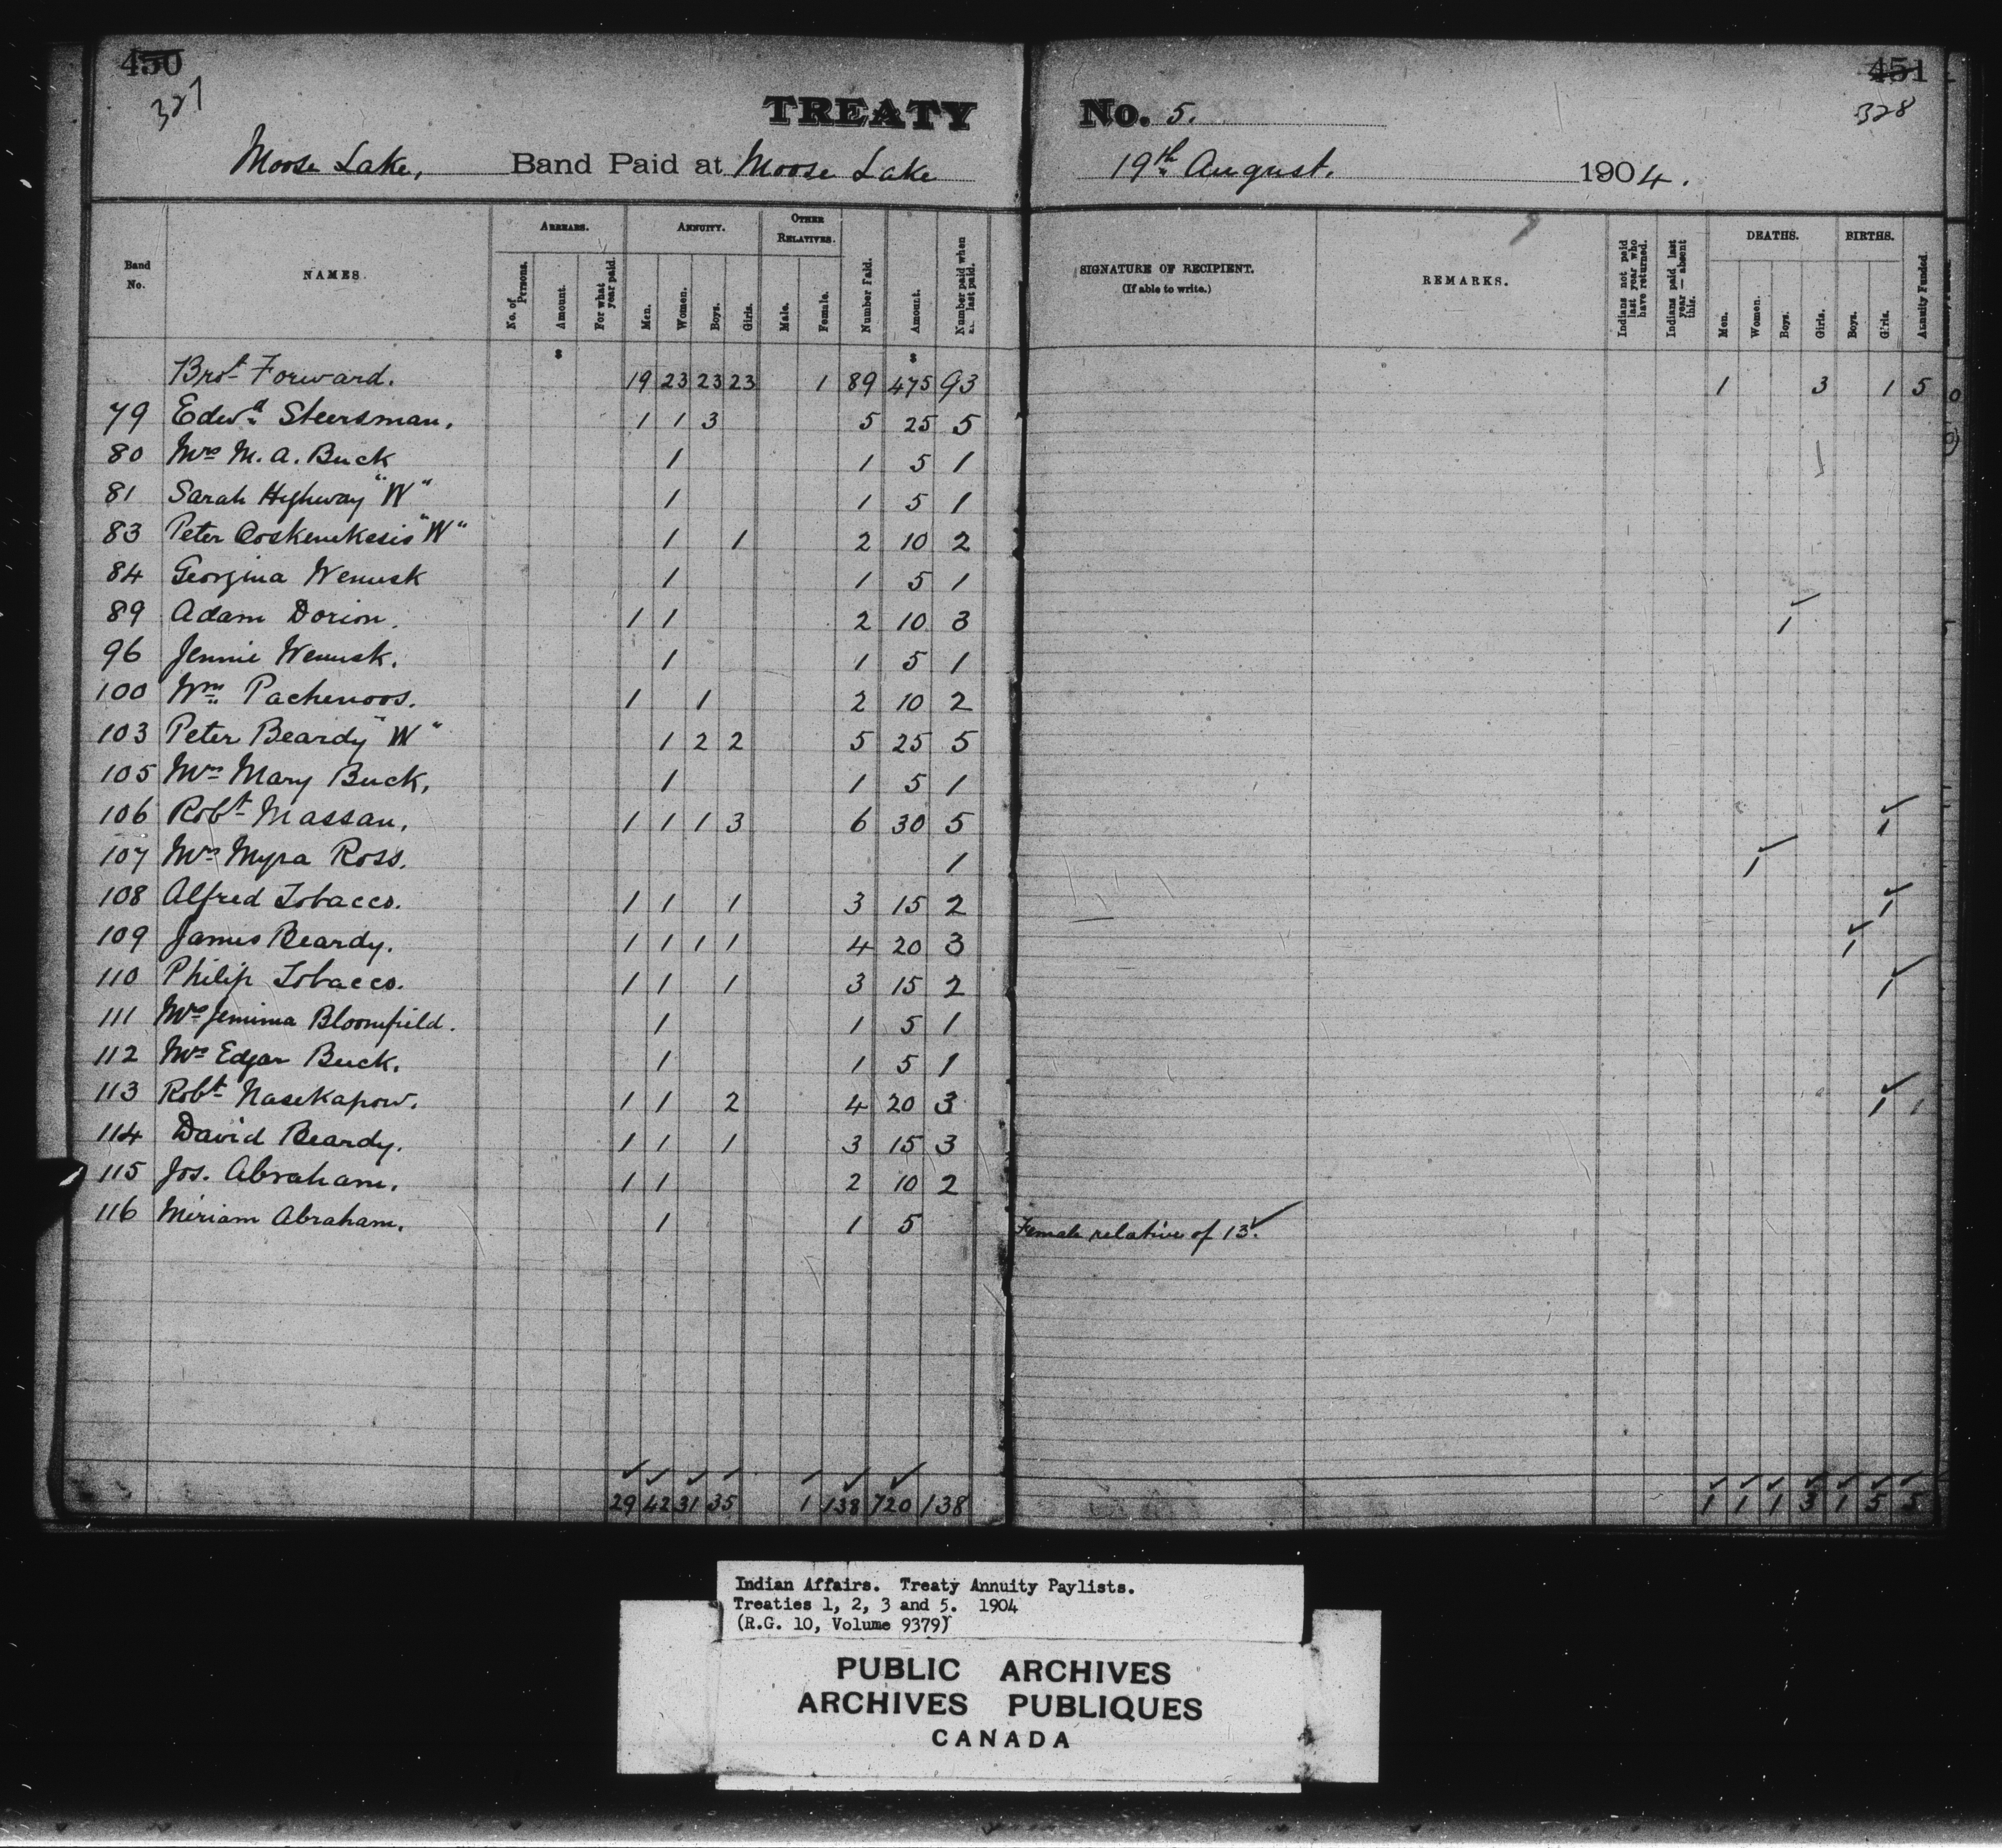 450 451
327 328
TREATY No. 5.
Moose Lake, Band Paid at Moose Lake 19th August. 1904.
Band No. NAMES. ARREARS. No. of Persons. Amount. For what year paid. ANNUITY. Men. Women. Boys. Girls. OTHER RELATIVES. Male. Female. Number Paid. Amount. Number paid when last paid. SIGNATURE OF RECIPIENT. (If able to write.) REMARKS. Indians not paid last year who have returned. Indians paid last year — absent this. DEATHS. Men. Women. Boys. Girls. BIRTHS. Boys. Girls. Annuity Funded.
Brot Forward. 19 23 23 23 1 89 475 93 1 3 1 5
79 Edwd Steersman. 1 1 3 5 25 5
80 Mrs M. A. Buck 1 1 5 1
81 Sarah Highway "W" 1 1 5 1
83 Peter "W" 1 1 2 10 2
84 Georgina Wemusk 1 1 5 1
89 Adam Dorion. 1 1 2 10 3 1
96 Jennie Wemusk. 1 1 5 1
100 Wm Pachenoos. 1 1 2 10 2
103 Peter Beardy "W" 1 2 2 5 25 5
105 Mrs Mary Buck, 1 1 5 1
106 Robt Massan. 1 1 1 3 6 30 5 1
107 Mrs Myra Ross. 1 1
108 Alfred Tobacco. 1 1 1 3 15 2 1
109 James Beardy. 1 1 1 1 4 20 3 1
110 Philip Tobacco. 1 1 1 3 15 2 1
111 Mrs Jemima Bloomfield. 1 1 5 1
112 Mrs Edgar Buck. 1 1 5 1
113 Robt Nasekapow. 1 1 2 4 20 3 1 1
114 David Beardy. 1 1 1 3 15 3
115 Jos. Abraham. 1 1 2 10 2
116 Miriam Abraham. 1 1 5 Female relative of 13.
29 42 31 35 1 138 720 138 1 1 1 3 1 5 5
Indian Affairs. Treaty Annuity Paylists.
Treaties 1, 2, 3 and 5. 1904
(R.G. 10, Volume 9379)
PUBLIC ARCHIVES
ARCHIVES PUBLIQUES
CANADA